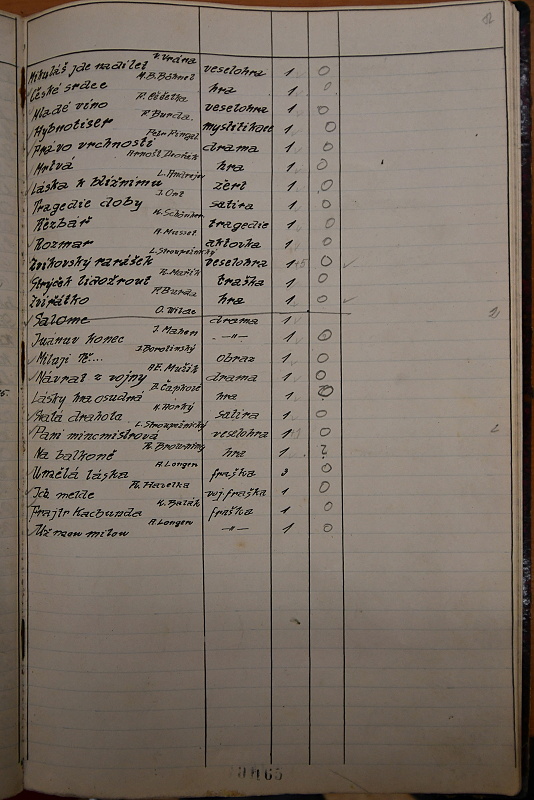 V. Vrána
Mikuláš jde nadílet veselohra 1 0
M.B. Böhnel
České srdce hra 1 0
Mladé víno veselohra 1 0
F. Burda
Hybnotiser 1 0
Petr Pingal
Právo vrchnosti drama 1 0
Arnošt Dvořák
Mrtvá hra 1 0
L. Andrejev
Láska k bližnímu žert 1 0
J. Ort
Tragedie doby satira 1 0
K. Schönherr
Řezbář tragedie 1 0
Rozmar aktovka 1 0
L. Stroupežnický
Zvíkovský rarášek veselohra 1 0
K. Mařík
Strýček lidožrout fraška 1 0
F. Burda
Zvířátko hra 1 0
O. Wilde
Salome drama 1
J. Mahen
Juanův konec -"- 1 0
J. Borotinský
Miluji Tě.... obraz 1 0
A.E. Mužík
Návrat z vojny drama 1 0
B. Čapkové
Lásky hra osudná hra 1 0
K. Horký
Svatá drahota satira 1 0
L. Stroupežnický
Paní mincmistrová veselohra 1 0
R. Browning
Na balkoně hra 1 ?
A. Longen
Umělá láska fraška 0
R. Havelka
Ich melde voj. fraška 1 0
K. Balák
Frajtr Kachunda fraška 1 0
A. Longen
-"- 1 0